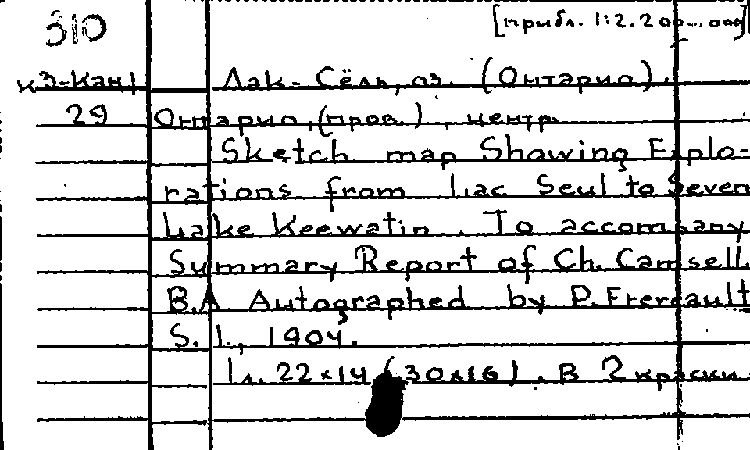 310
[прибл. 1:2.200.000]
К3-Кан1 Лак-Сёль, оз. (Онтарио).
29 Онтарио, (пров.), центр.
Sketch map Showing Explo=
rations from Lac Seul to Seven
Lake Keewatin. To accompany
Summary Report of Ch. Camsell.
B.A Autographed by P. Frereault
S.l., 1904.
1л. 22×14 (30×16). В 2 краски